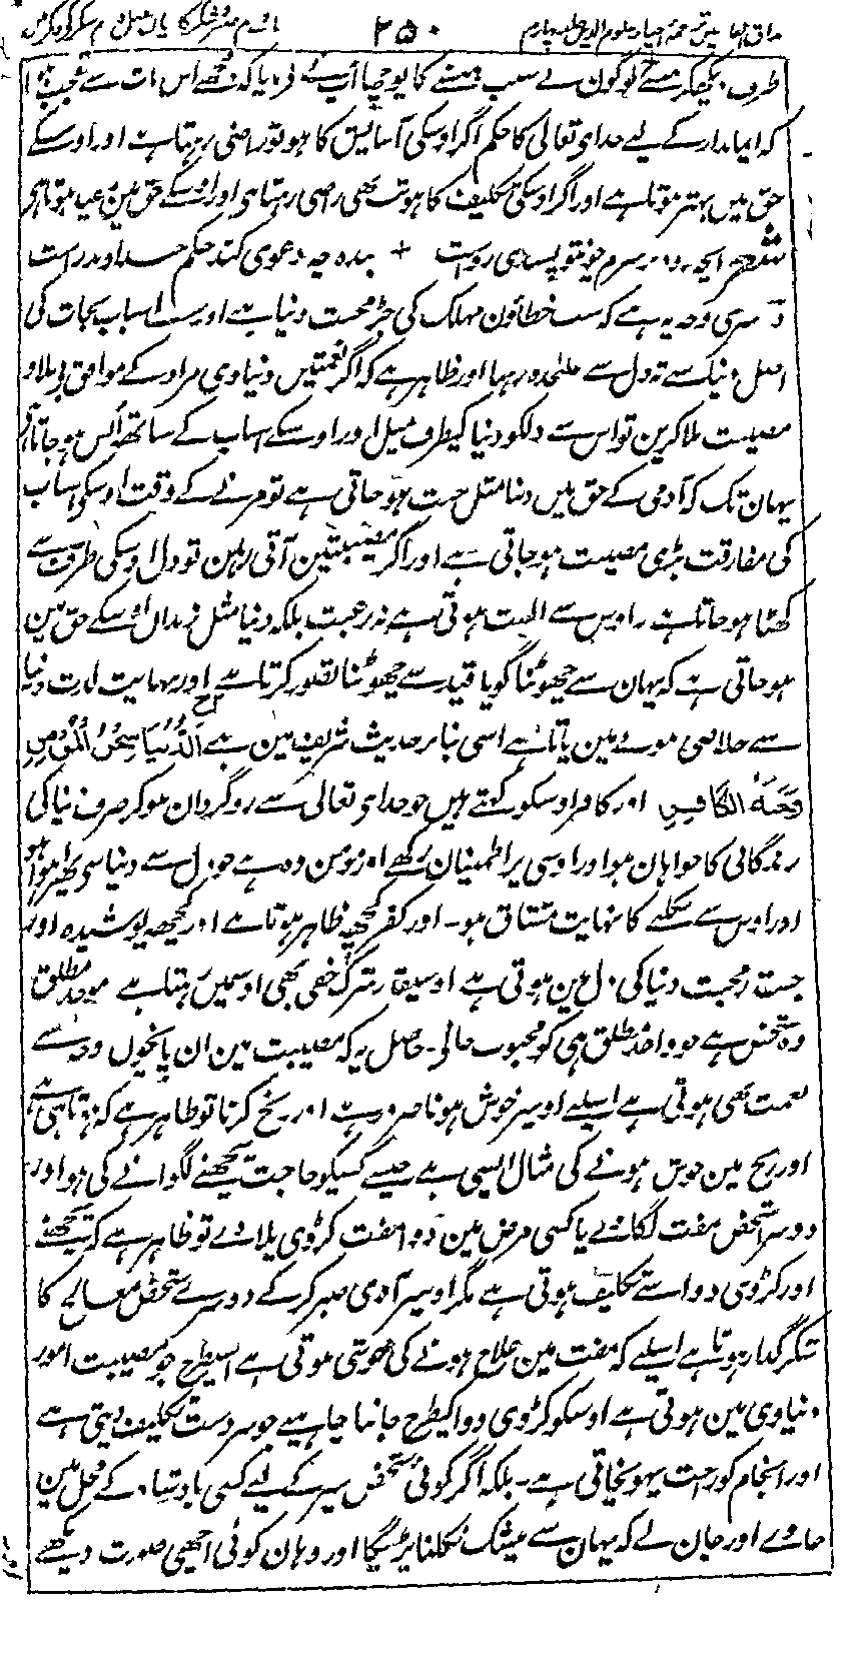 مذاق العارفین ترجمہ احیاء علوم الدین جلد چہارم ۲۵۰ باب دوم صبر و شکر کا بیان فصل دوم شکر کے ذکر میں
طرف دیکھکر ہنسے لوگون نے سبب ہنسنے کا پوچھا آپ نے فرمایا کہ مجھے اس بات سے تعجب ہوا
کہ ایماندار کے لیے خدای تعالی کا حکم اگر اوسکی آسایش کا ہو تو راضی رہتا ہے اور اوسکے
حق میں بہتر ہوتا ہے اور اگر اوسکی تکلیف کا ہو تب بھی راضی رہتا ہی اور اوسکے حق مین
شعر انچہ رود بر سرم چونتو پسندی رواست + بندہ چہ دعوی کند حکم خداوند راست
دوسری وجہ یہ ہے کہ سب خطائون مہلک کی جڑ محبت دنیا ہے اور سب اسباب نجات کی
اصل دنیا سے تہ دل سے علٰحدہ رہنا اور ظاہر ہے کہ اگر نعمتیں دنیاوی مراد کے موافق بدون
مصیبت ملا کرین تو اس سے دلکو دنیا کیطرف میل اور اوسکے اسباب کے ساتھ اُنس ہو جاتا ہی
یہان تک کہ آدمی کے حق میں دنیا مثل جنت ہو جاتی ہے تو مرنے کے وقت اوسکی اسباب
کی مفارقت بڑی مصیبت ہو جاتی ہے اور اگر مصیبتین آتی رہین تو دل اوسکی طرف سے
کھٹا ہو جاتا ہے نہ اوس سے الفت ہوتی ہے نہ رغبت بلکہ دنیا مثل زندان اوسکے حق مین
ہو جاتی ہے کہ یہان سے چھوٹنا گویا قید سے چھوٹنا تصور کرتا ہے اور نہایت لذت دنیا
سے خلاصی ہونے مین پاتا ہے اسی بنا پر حدیث شریف مین ہے اَلدُّنْیَا سِجْنُ الْمُؤْمِنِ
وَجَنَّۃُ الْکَافِرِ اور کافر اوسکو کہتے ہیں جو خدای تعالی سے روگردان ہو کر صرف دنیا کی
زندگانی کا خواہان ہو اور اوسی پر اطمینان رکھے اور مومن وہ ہے جو دل سے دنیا سی پھرا ہوا ہو
اور اوس سے نکلنے کا نہایت مشتاق ہو۔ اور کفر کچھ ظاہر ہوتا ہے اور کچھ پوشیدہ اور
جسقدر محبت دنیا کی دل مین ہوتی ہے اوسیقدر شرک خفی بھی اوسمیں رہتا ہے موحد مطلق
وہ شخص ہے جو واحد مطلق ہی کو محبوب جانی۔ حاصل یہ کہ مصیبت مین ان پانچوں وجہ سے
نعمت بھی ہوتی ہے اسلیے اوسپر خوش ہونا ضرور ہے اور رنج کرنا تو ظاہر ہے کہ ہوتا ہی ہے
اور رنج مین خوش ہونے کی مثال ایسی ہے جیسے کسیکو حاجت پچھنے لگوانے کی ہو اور
دوسرا شخص مفت لگاوے یا کسی مرض مین دوا مفت کڑوی پلاوے تو ظاہر ہے کہ پچھنے
اور کڑوی دوا سے تکلیف ہوتی ہے مگر اوسپر آدمی صبر کرکے دوسرے شخص معالج کا
شکرگذار ہوتا ہے اسلیے کہ مفت مین علاج ہونے کی خوشی ہوتی ہے اسیطرح جو مصیبت امور
دنیاوی مین ہوتی ہے اوسکو کڑوی دوا کیطرح جاننا چاہیے جو سر دست تکلیف دیتی ہے
اور انجام کو راحت پہونچاتی ہے۔ بلکہ اگر کوئی شخص سیر کے لیے کسی بادشاہ کے محل مین
جاوے اور جان لے کہ یہان سے بیشک نکلنا پڑیگا اور وہان کوئی اچھی صورت دیکھے